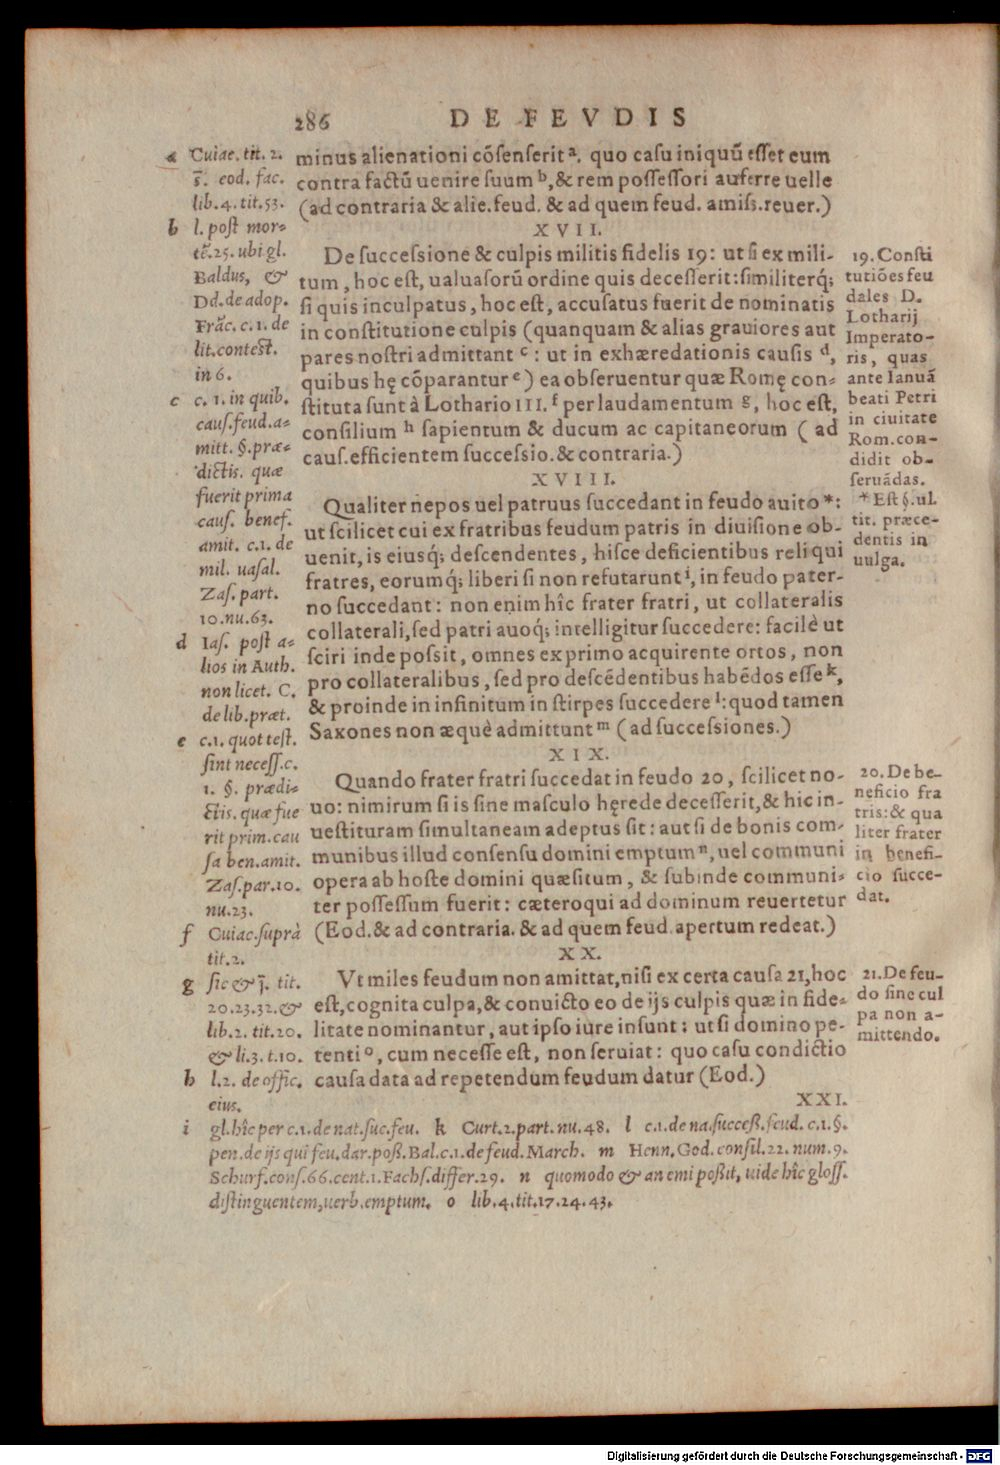 286 DE FEVDIS
minus alienationi cõſenſerit ª. quo caſu iniquũ eſſet eum
contra factũ uenire ſuum ᵇ, & rem poſſeſſori auferre uelle
(ad contraria & alie.feud. & ad quem feud. amiſs.reuer.)
XVII.
De ſucceſsione & culpis militis fidelis 19: ut ſi ex mili-
tum, hoc eſt, ualuaſorũ ordine quis deceſſerit: ſimiliterq́;
ſi quis inculpatus, hoc eſt, accuſatus fuerit de nominatis
in conſtitutione culpis (quanquam & alias grauiores aut
pares noſtri admittant ᶜ: ut in exhæredationis cauſis ᵈ,
quibus hę cõparantur ᵉ) ea obſeruentur quæ Romę con-
ſtituta ſunt à Lothario III. ᶠ per laudamentum ᵍ, hoc eſt,
conſilium ʰ ſapientum & ducum ac capitaneorum (ad
cauſ.efficientem ſucceſsio. & contraria.)
XVIII.
Qualiter nepos uel patruus ſuccedant in feudo auito *:
ut ſcilicet cui ex fratribus feudum patris in diuiſione ob-
uenit, is eiusq́; deſcendentes, hiſce deficientibus reliqui
fratres, eorumq́; liberi ſi non refutarunt ⁱ, in feudo pater-
no ſuccedant: non enim hîc frater fratri, ut collateralis
collaterali, ſed patri auoq́; intelligitur ſuccedere: facilè ut
ſciri inde poſsit, omnes ex primo acquirente ortos, non
pro collateralibus, ſed pro deſcẽdentibus habẽdos eſſe ᵏ,
& proinde in infinitum in ſtirpes ſuccedere ˡ: quod tamen
Saxones non æquè admittunt ᵐ (ad ſucceſsiones.)
XIX.
Quando frater fratri ſuccedat in feudo 20, ſcilicet no-
uo: nimirum ſi is ſine maſculo hęrede deceſſerit, & hic in-
ueſtituram ſimultaneam adeptus ſit: aut ſi de bonis com-
munibus illud conſenſu domini emptum ⁿ, uel communi
opera ab hoſte domini quæſitum, & ſubinde communi-
ter poſſeſſum fuerit: cæteroqui ad dominum reuertetur
(Eod. & ad contraria. & ad quem feud. apertum redeat.)
XX.
Vt miles feudum non amittat, niſi ex certa cauſa 21, hoc
eſt, cognita culpa, & conuicto eo de ijs culpis quæ in fide-
litate nominantur, aut ipſo iure inſunt: ut ſi domino pe-
tenti ᵒ, cum neceſſe eſt, non ſeruiat: quo caſu condictio
cauſa data ad repetendum feudum datur (Eod.)
XXI.
a Cuiac. tit. 2.
s̃. eod. fac.
lib. 4. tit. 53.
b l. poſt mor-
tẽ. 25. ubi gl.
Baldus, &
Dd. de adop.
Frãc. c. 1. de
lit. conteſt.
in 6.
c c. 1. in quib.
cauſ. feud. a-
mitt. §. præ-
dictis. quæ
fuerit prima
cauſ. benef.
amit. c. 1. de
mil. uaſal.
Zaſ. part.
10. nu. 63.
d Iaſ. poſt a-
lios in Auth.
non licet. C.
de lib. præt.
e c. 1. quot teſt.
ſint neceſſ. c.
1. §. prædi-
ctis. quæ fue
rit prim. cau
ſa ben. amit.
Zaſ. par. 10.
nu. 23.
f Cuiac. ſuprà
tit. 2.
g ſic & j̃. tit.
20. 23. 32. &
lib. 2. tit. 20.
& li. 3. t. 10.
h l. 2. de offic.
eius.
19. Conſti
tutiões feu
dales D.
Lotharij
Imperato-
ris, quas
ante Ianuã
beati Petri
in ciuitate
Rom. con-
didit ob-
ſeruãdas.
* Eſt §. ul.
tit. præce-
dentis in
uulga.
20. De be-
neficio fra
tris: & qua
liter frater
in benefi-
cio ſucce-
dat.
21. De feu-
do ſine cul
pa non a-
mittendo.
i gl. hîc per c. 1. de nat. ſuc. feu. k Curt. 2. part. nu. 48. l c. 1. de na. ſucceß. feud. c. 1. §.
pen. de ijs qui feu. dar. poß. Bal. c. 1. de feud. March. m Henn. God. conſil. 22. num. 9.
Schurf. conſ. 66. cent. 1. Fachſ. differ. 29. n quomodo & an emi poßit, uide hîc gloſſ.
diſtinguentem, uerb. emptum. o lib. 4. tit. 17. 24. 43.
Digitalisierung gefördert durch die Deutsche Forschungsgemeinschaft - DFG